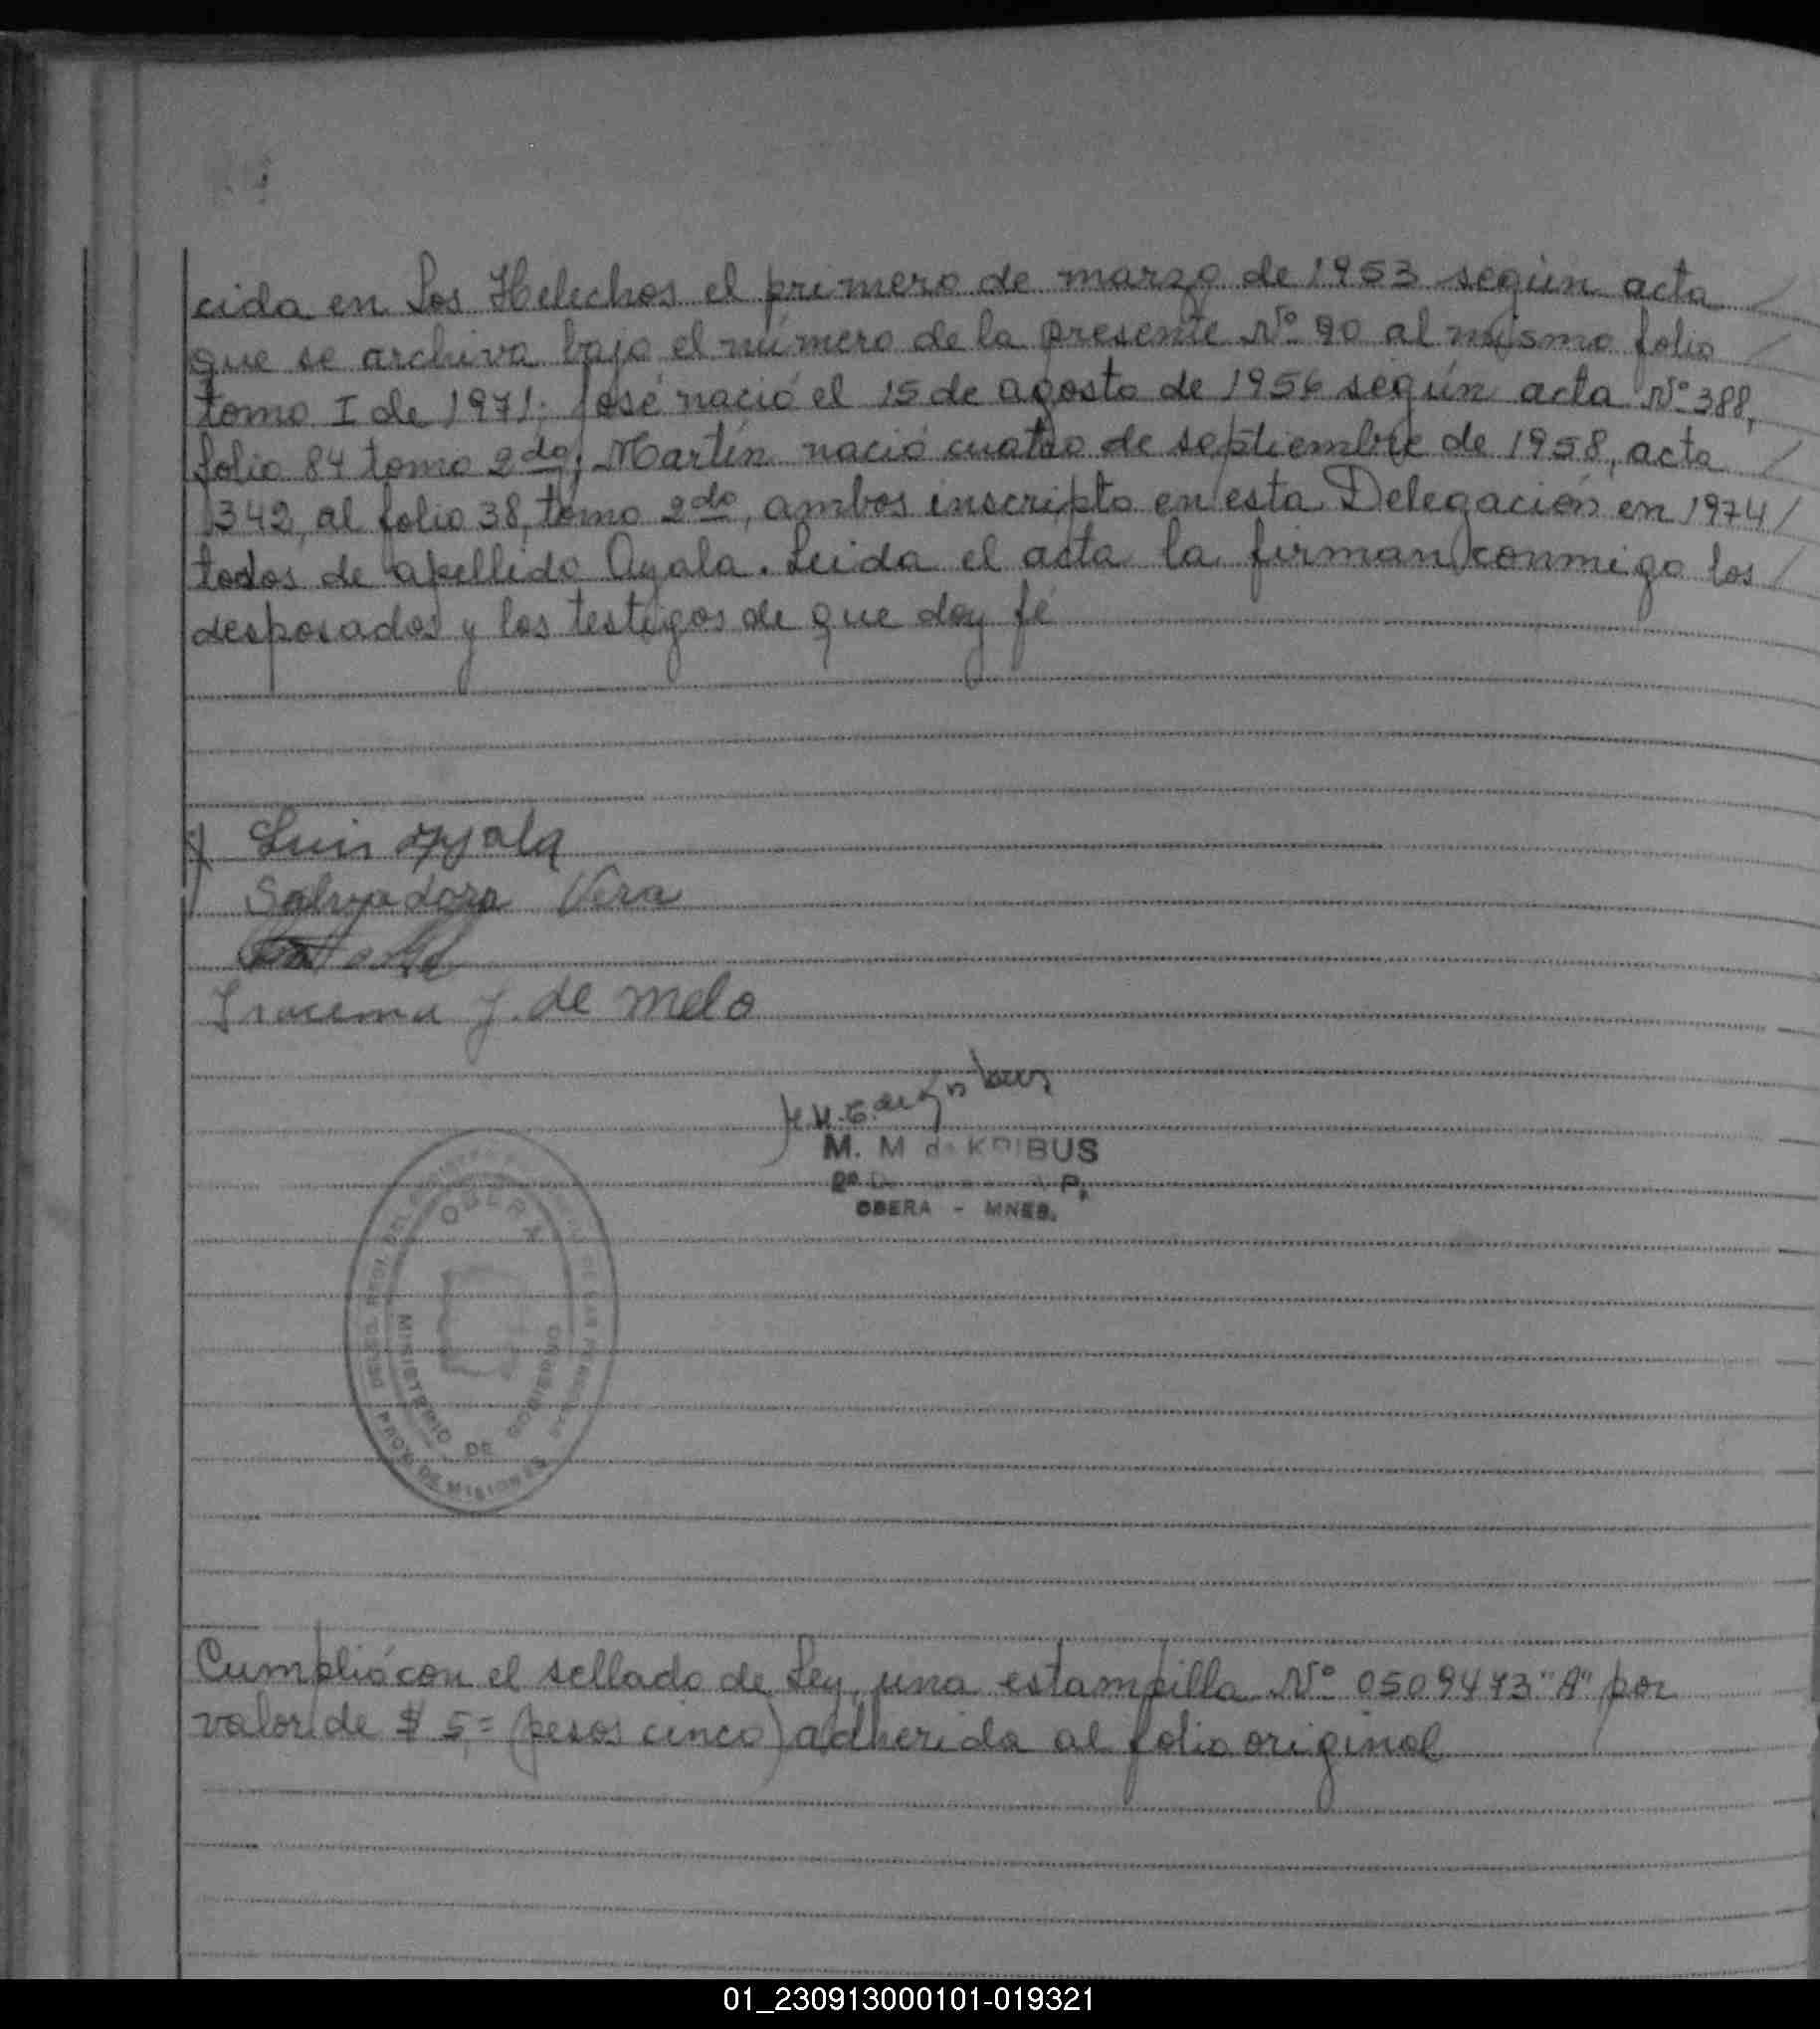 cida en Los Helechos el primero de marzo de 1953 según acta
que se archiva bajo el número de la presente Nº 90 al mismo folio
tomo I de 1971; José nació el 15 de agosto de 1956 según acta Nº 388,
folio 84 tomo 2do; Martín nació cuatro de septiembre de 1958, acta
342, al folio 38, tomo 2do, ambos inscripto en esta Delegación en 1974
todos de apellido Ayala. Leida el acta la firman conmigo los
desposados y los testigos de que doy fé
Luis Ayala
Salvadora Vera
Iracema J. de Melo
M. M de KRIBUS
OBERA - MNES.
OBERA
MINISTERIO DE GOBIERNO
PROV. DE MISIONES
Cumplió con el sellado de Ley, una estampilla Nº 0509473 "A" por
valor de $ 5,= (pesos cinco) adherida al folio original
01_230913000101-019321